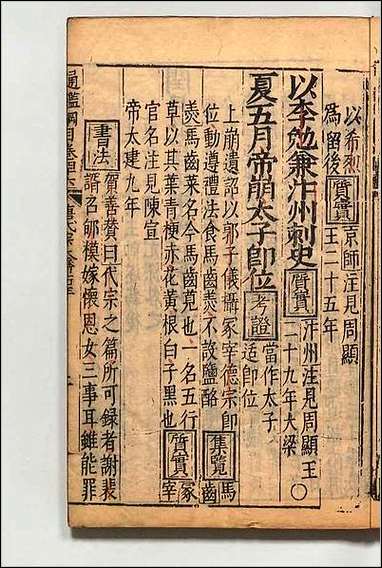 以希烈
爲留後
質實
京師注見周顯
王二十五年
以李勉兼汴州刺史
質實
汴州注見周顯王
二十九年大梁
○
夏五月帝崩太子即位
考證
當作太子
适即位
上崩遺詔以郭子儀攝冢宰德宗即
位動遵禮法食馬齒羮不設鹽酪
集覽
馬齒
羮馬齒菜名今馬齒莧也一名五行
草以其葉青梗赤花黃根白子黑也
質實
冢宰
官名注見陳宣
帝太建九年
書法
賀善贊曰代宗之篇所可録者謝裴
諝召郇模嫁懷恩女三事耳雖能罪
通鑑綱目卷四